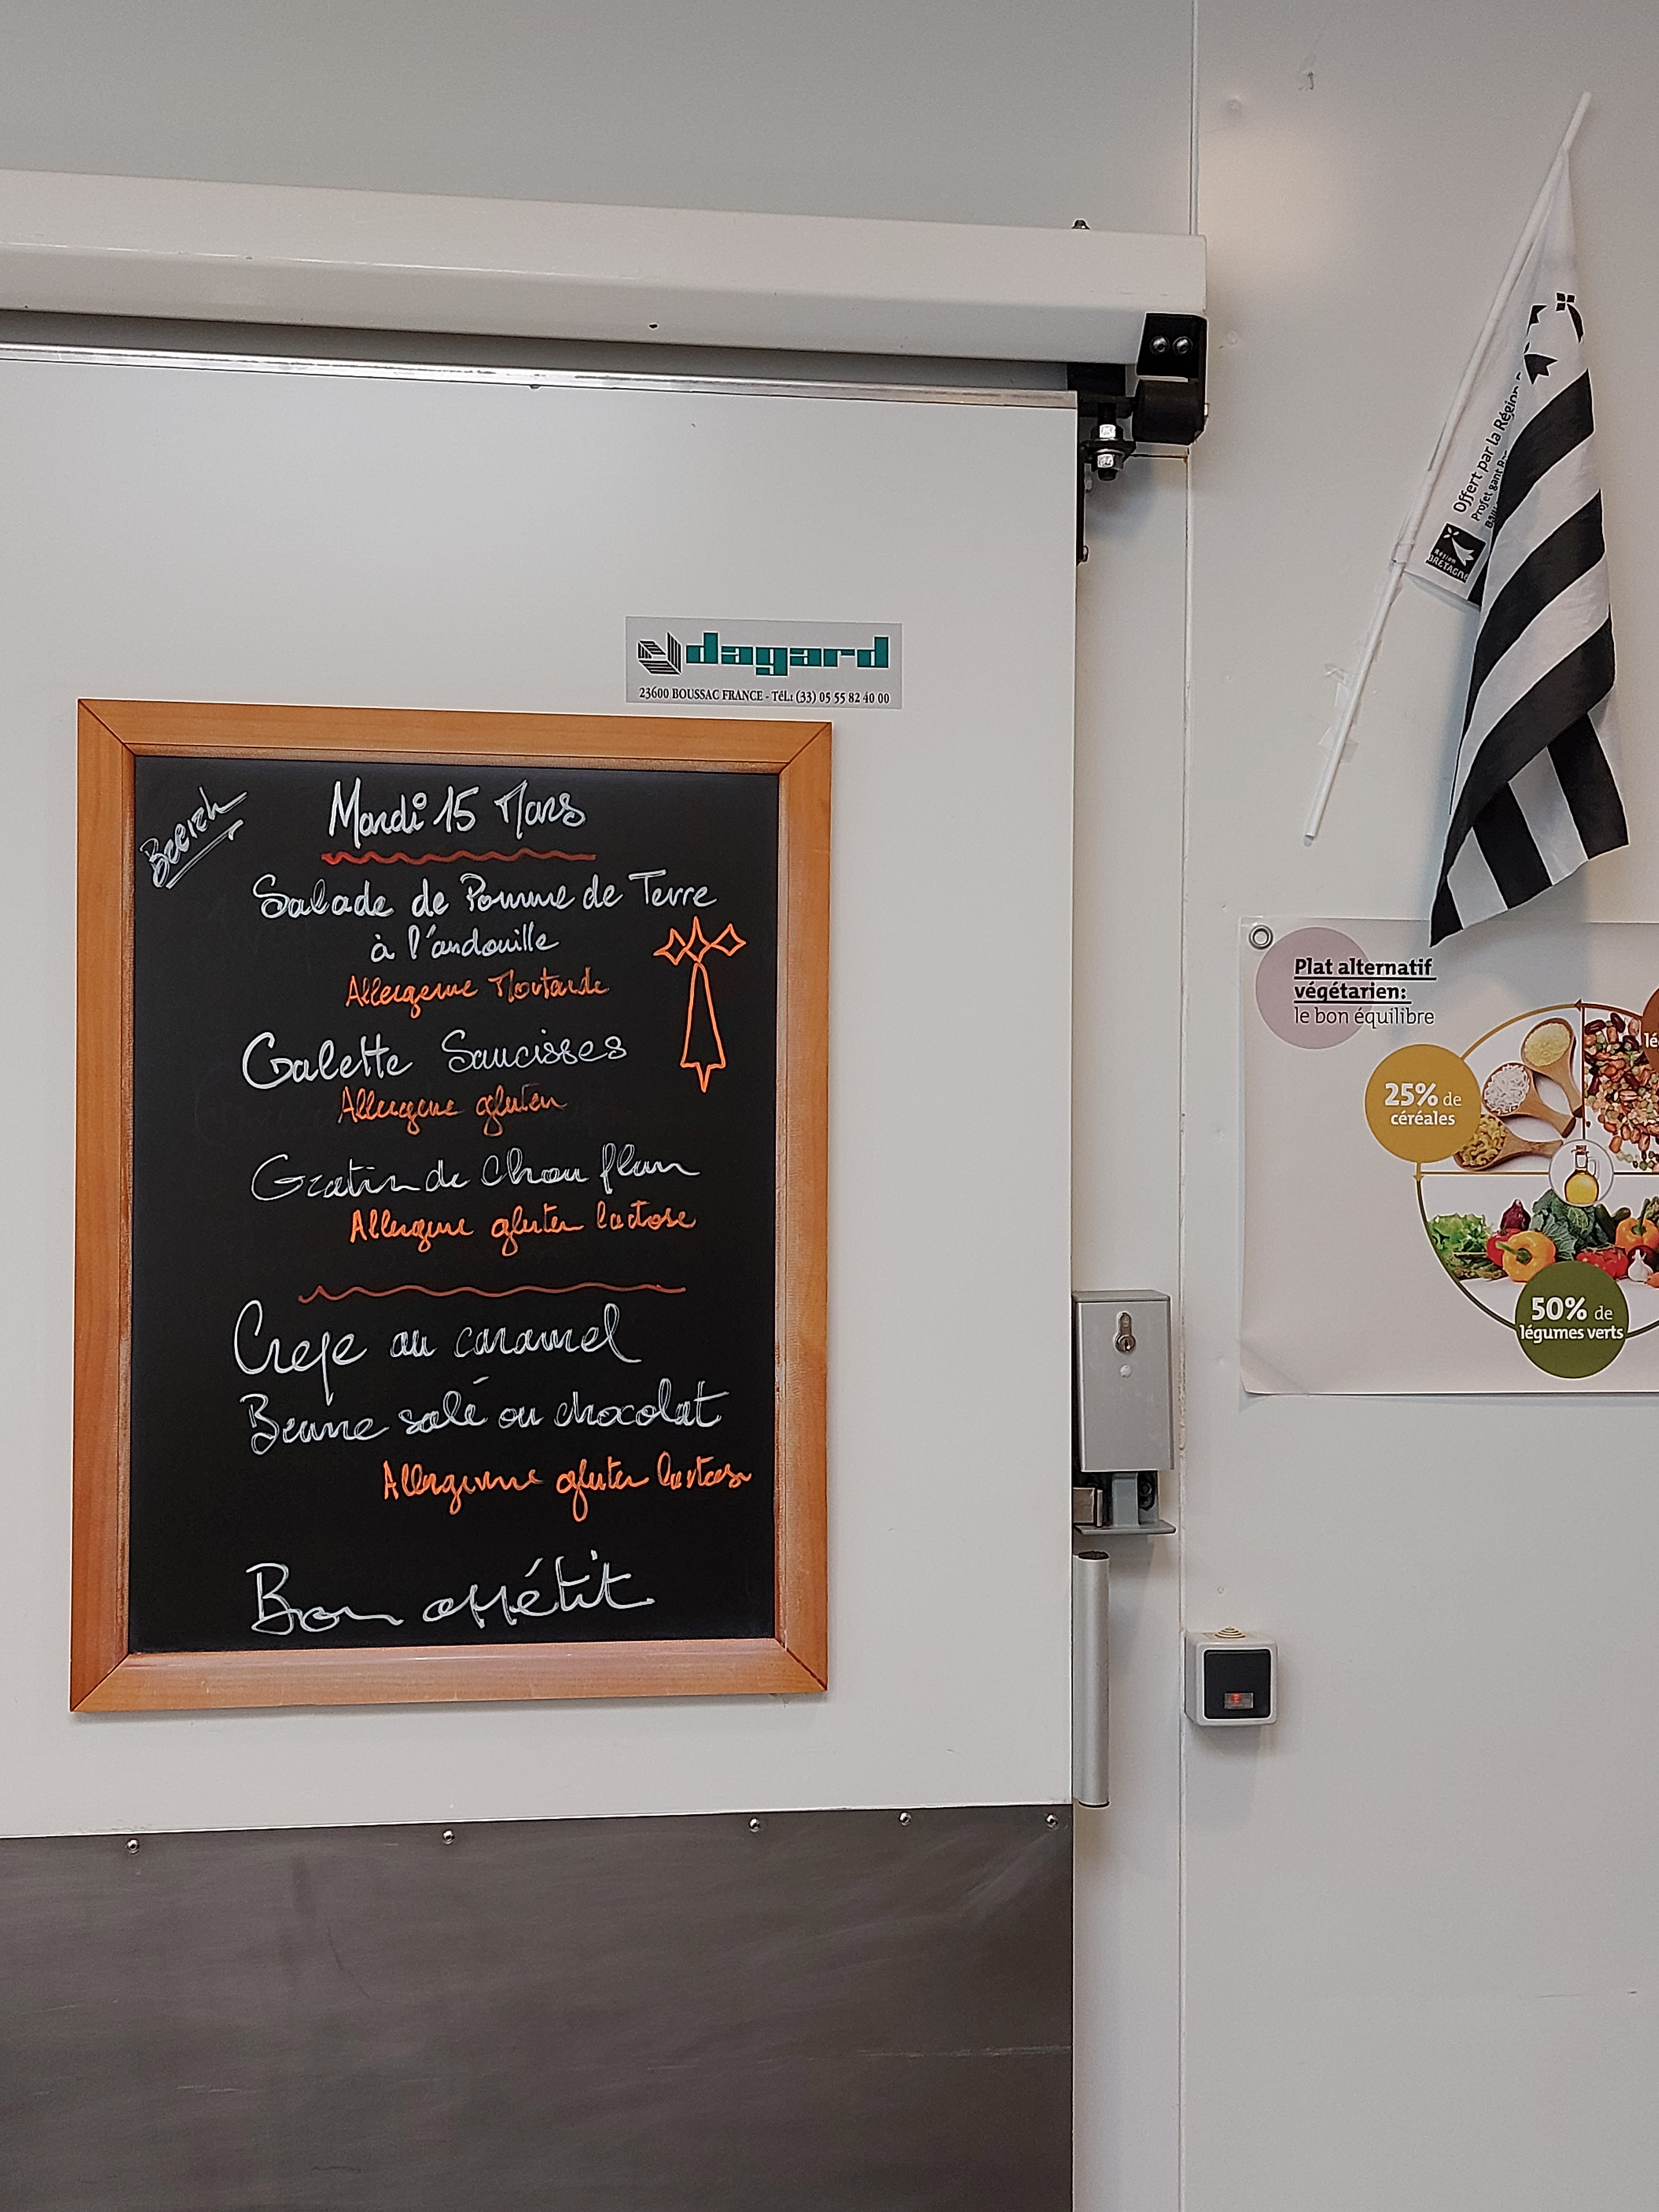 dagard
23600 BOUSSAC FRANCE - Tél.: (33) 05 55 82 40 00
Breizh
Mardi 15 Mars
Salade de Pomme de Terre
à l'andouille
Allergene Moutarde
Galette Saucisses
Allergene gluten
Gratin de Chou fleur
Allergene gluten lactose
Crepe au caramel
Beurre salé ou chocolat
Allergene gluten lactose
Bon appétit
Offert par la Région
Projet
Région
BRETAGNE
Plat alternatif
végétarien:
le bon équilibre
25% de
céréales
50% de
légumes verts